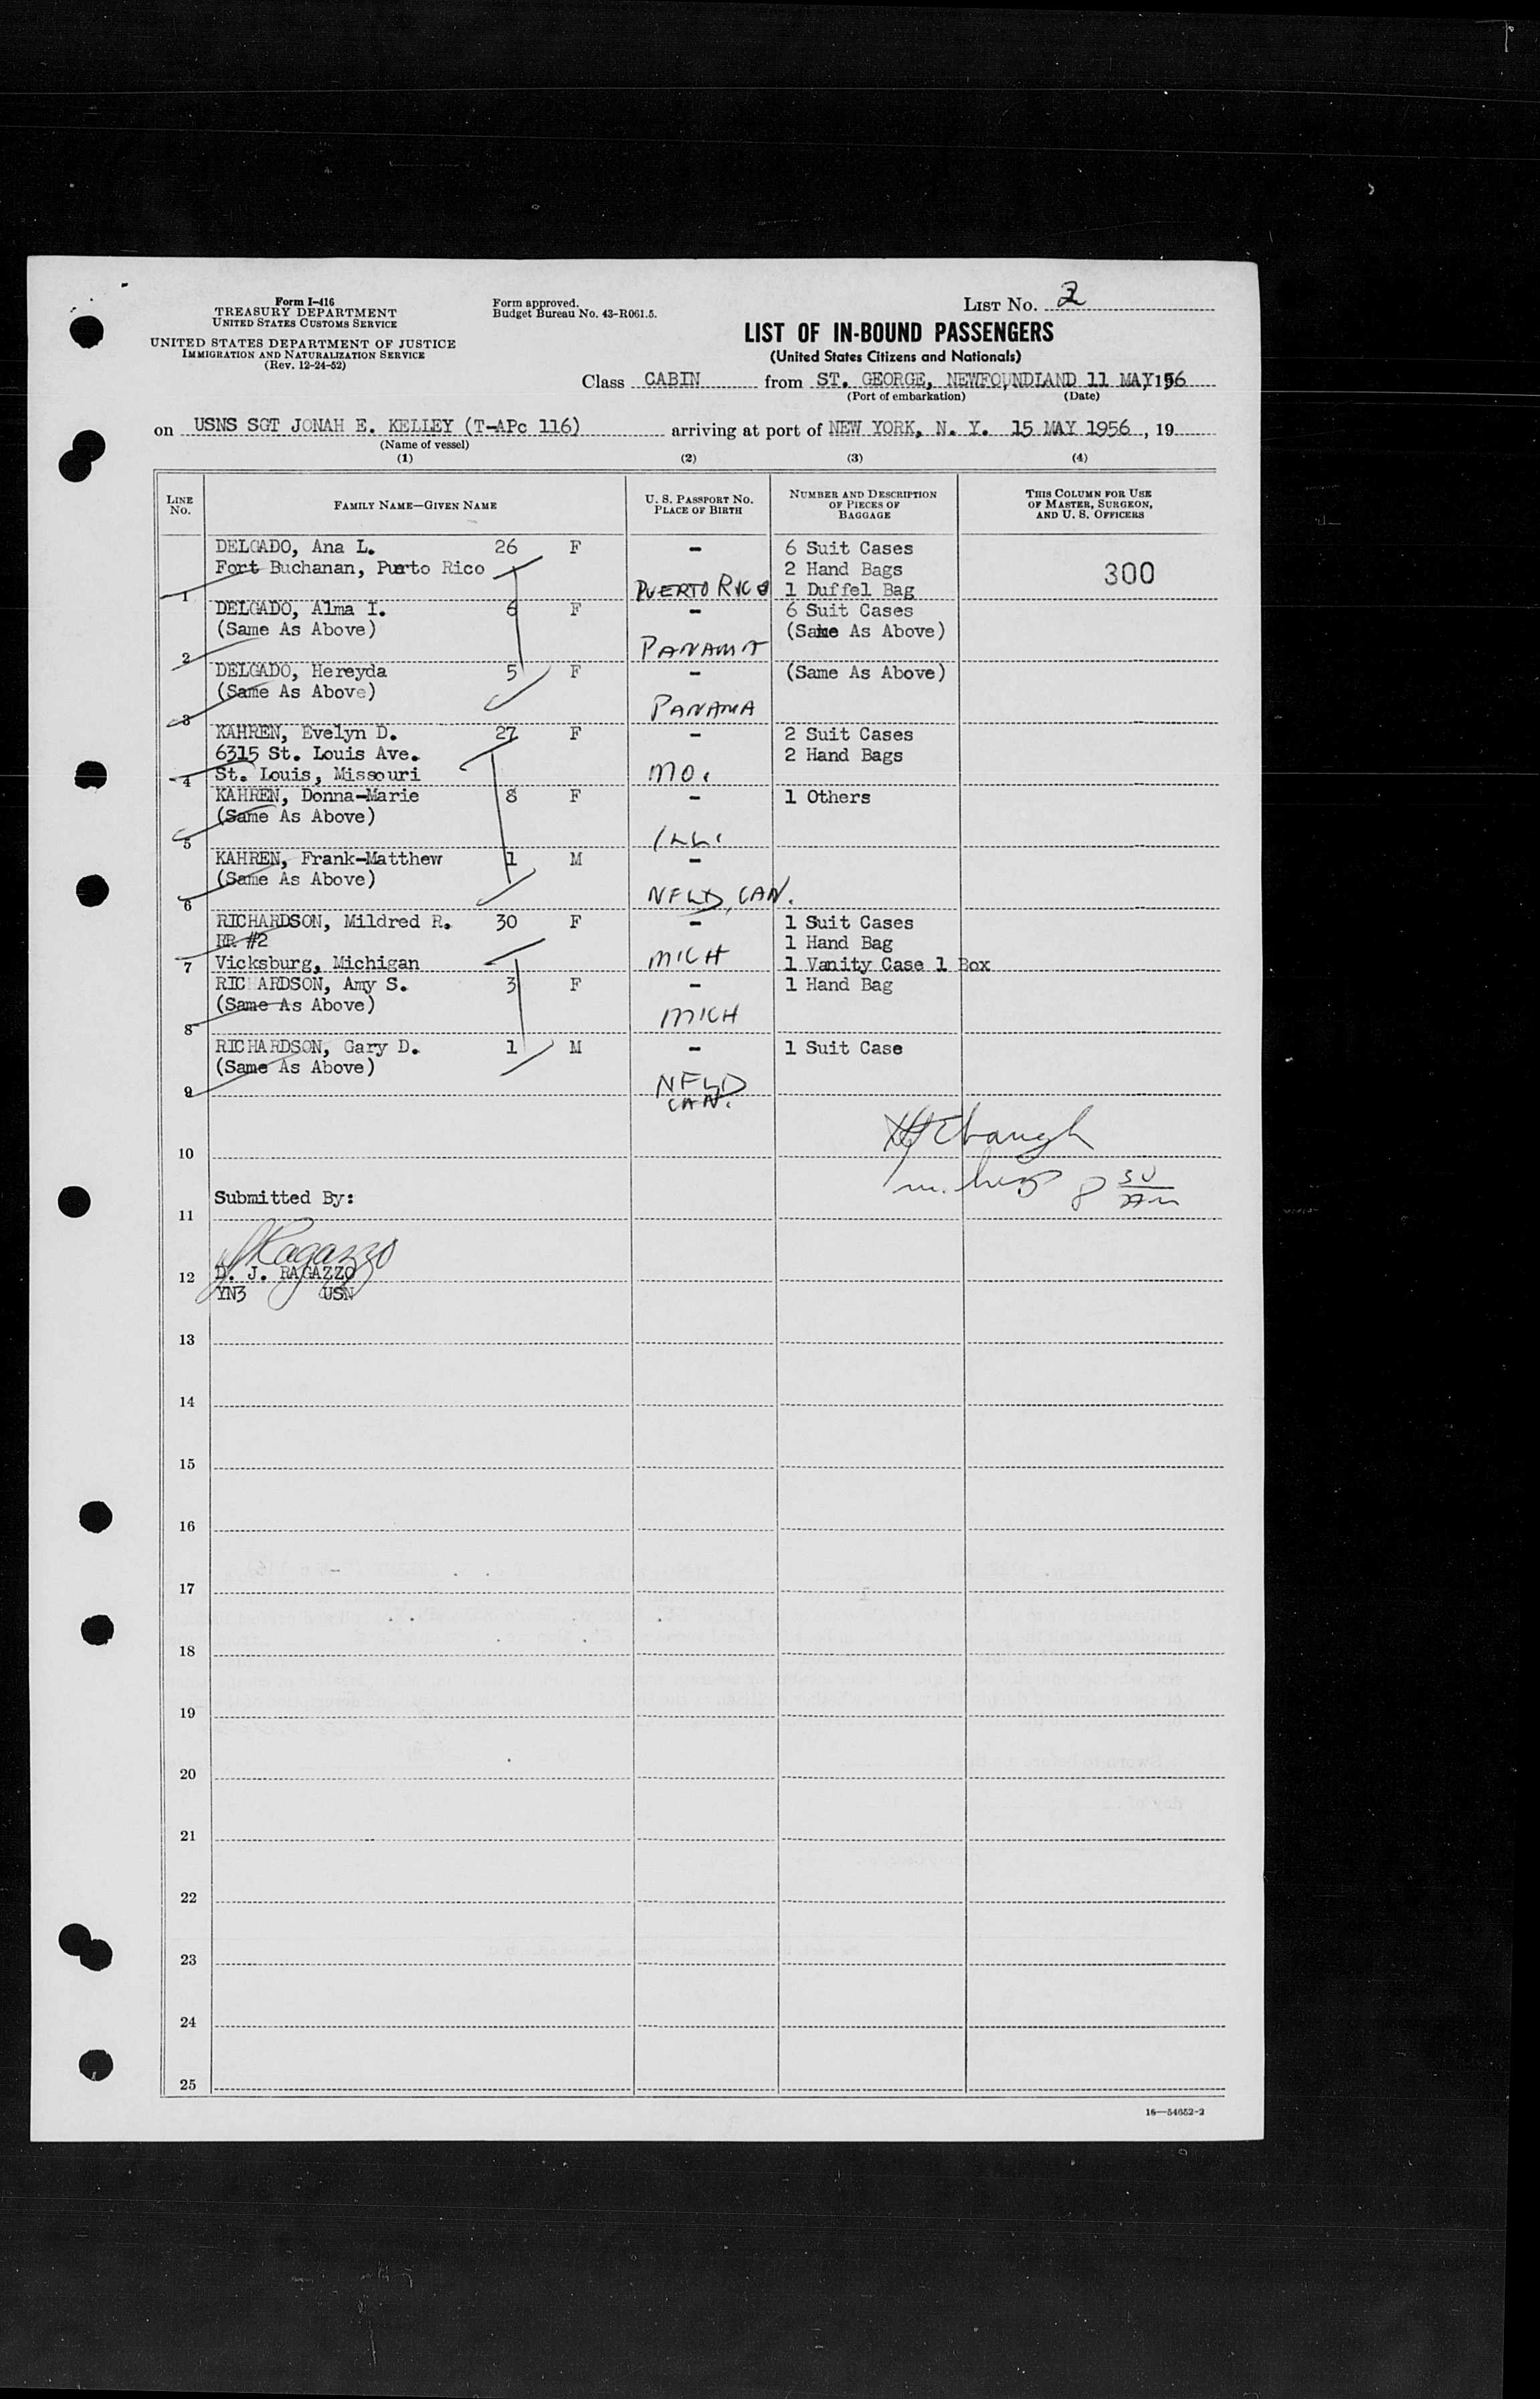 Form I-416
TREASURY DEPARTMENT
UNITED STATES CUSTOMS SERVICE
UNITED STATES DEPARTMENT OF JUSTICE
IMMIGRATION AND NATURALIZATION SERVICE
(Rev. 12-24-52)
Form approved.
Budget Bureau No. 43-R061.5.
LIST No. 2
LIST OF IN-BOUND PASSENGERS
(United States Citizens and Nationals)
Class CABIN from ST. GEORGE, NEWFOUNDLAND 11 MAY, 1956
(Port of embarkation) (Date)
on USNS SGT JONAH E. KELLEY (T-APc 116) arriving at port of NEW YORK, N. Y. 15 MAY 1956, 19
(Name of vessel)
(1) (2) (3) (4)
LINE No. FAMILY NAME—GIVEN NAME U. S. PASSPORT NO. PLACE OF BIRTH NUMBER AND DESCRIPTION OF PIECES OF BAGGAGE THIS COLUMN FOR USE OF MASTER, SURGEON, AND U. S. OFFICERS
DELGADO, Ana L. 26 F - 6 Suit Cases
Fort Buchanan, Puerto Rico 2 Hand Bags 300
1 PUERTO RICO 1 Duffel Bag
DELGADO, Alma I. 6 F - 6 Suit Cases
(Same As Above) (Same As Above)
2 PANAMA
DELGADO, Hereyda 5 F - (Same As Above)
(Same As Above)
3 PANAMA
KAHREN, Evelyn D. 27 F - 2 Suit Cases
6315 St. Louis Ave. 2 Hand Bags
4 St. Louis, Missouri MO.
KAHREN, Donna-Marie 8 F - 1 Others
(Same As Above)
5 ILL.
KAHREN, Frank-Matthew 1 M -
(Same As Above)
6 NFLD, CAN.
RICHARDSON, Mildred R. 30 F - 1 Suit Cases
RR #2 1 Hand Bag
7 Vicksburg, Michigan MICH 1 Vanity Case 1 Box
RICHARDSON, Amy S. 3 F - 1 Hand Bag
(Same As Above)
8 MICH
RICHARDSON, Gary D. 1 M - 1 Suit Case
(Same As Above)
9 NFLD
CAN.
10
Submitted By: 8 30
11
12 D. J. RAGAZZO
YN3 USN
13
14
15
16
17
18
19
20
21
22
23
24
25
16—54652-2